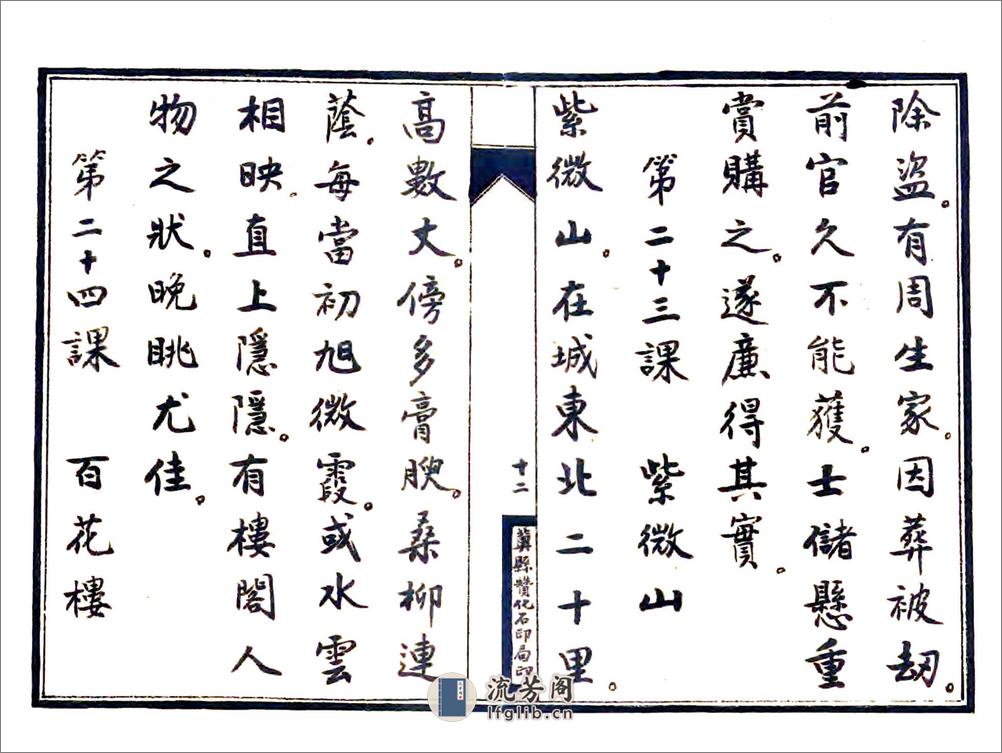 除盜。有周生家。因葬被刼。
前官久不能獲。士儲懸重
賞購之。遂廉得其實。
第二十三課　紫微山
紫微山。在城東北二十里。
十二
冀縣贊化石印局印
高數丈。傍多膏腴。桑柳連
蔭。每當初旭微霞。或水雲
相映。直上隱隱。有樓閣人
物之狀。晚眺尤佳。
第二十四課　百花樓
流芳阁
lfglib.cn